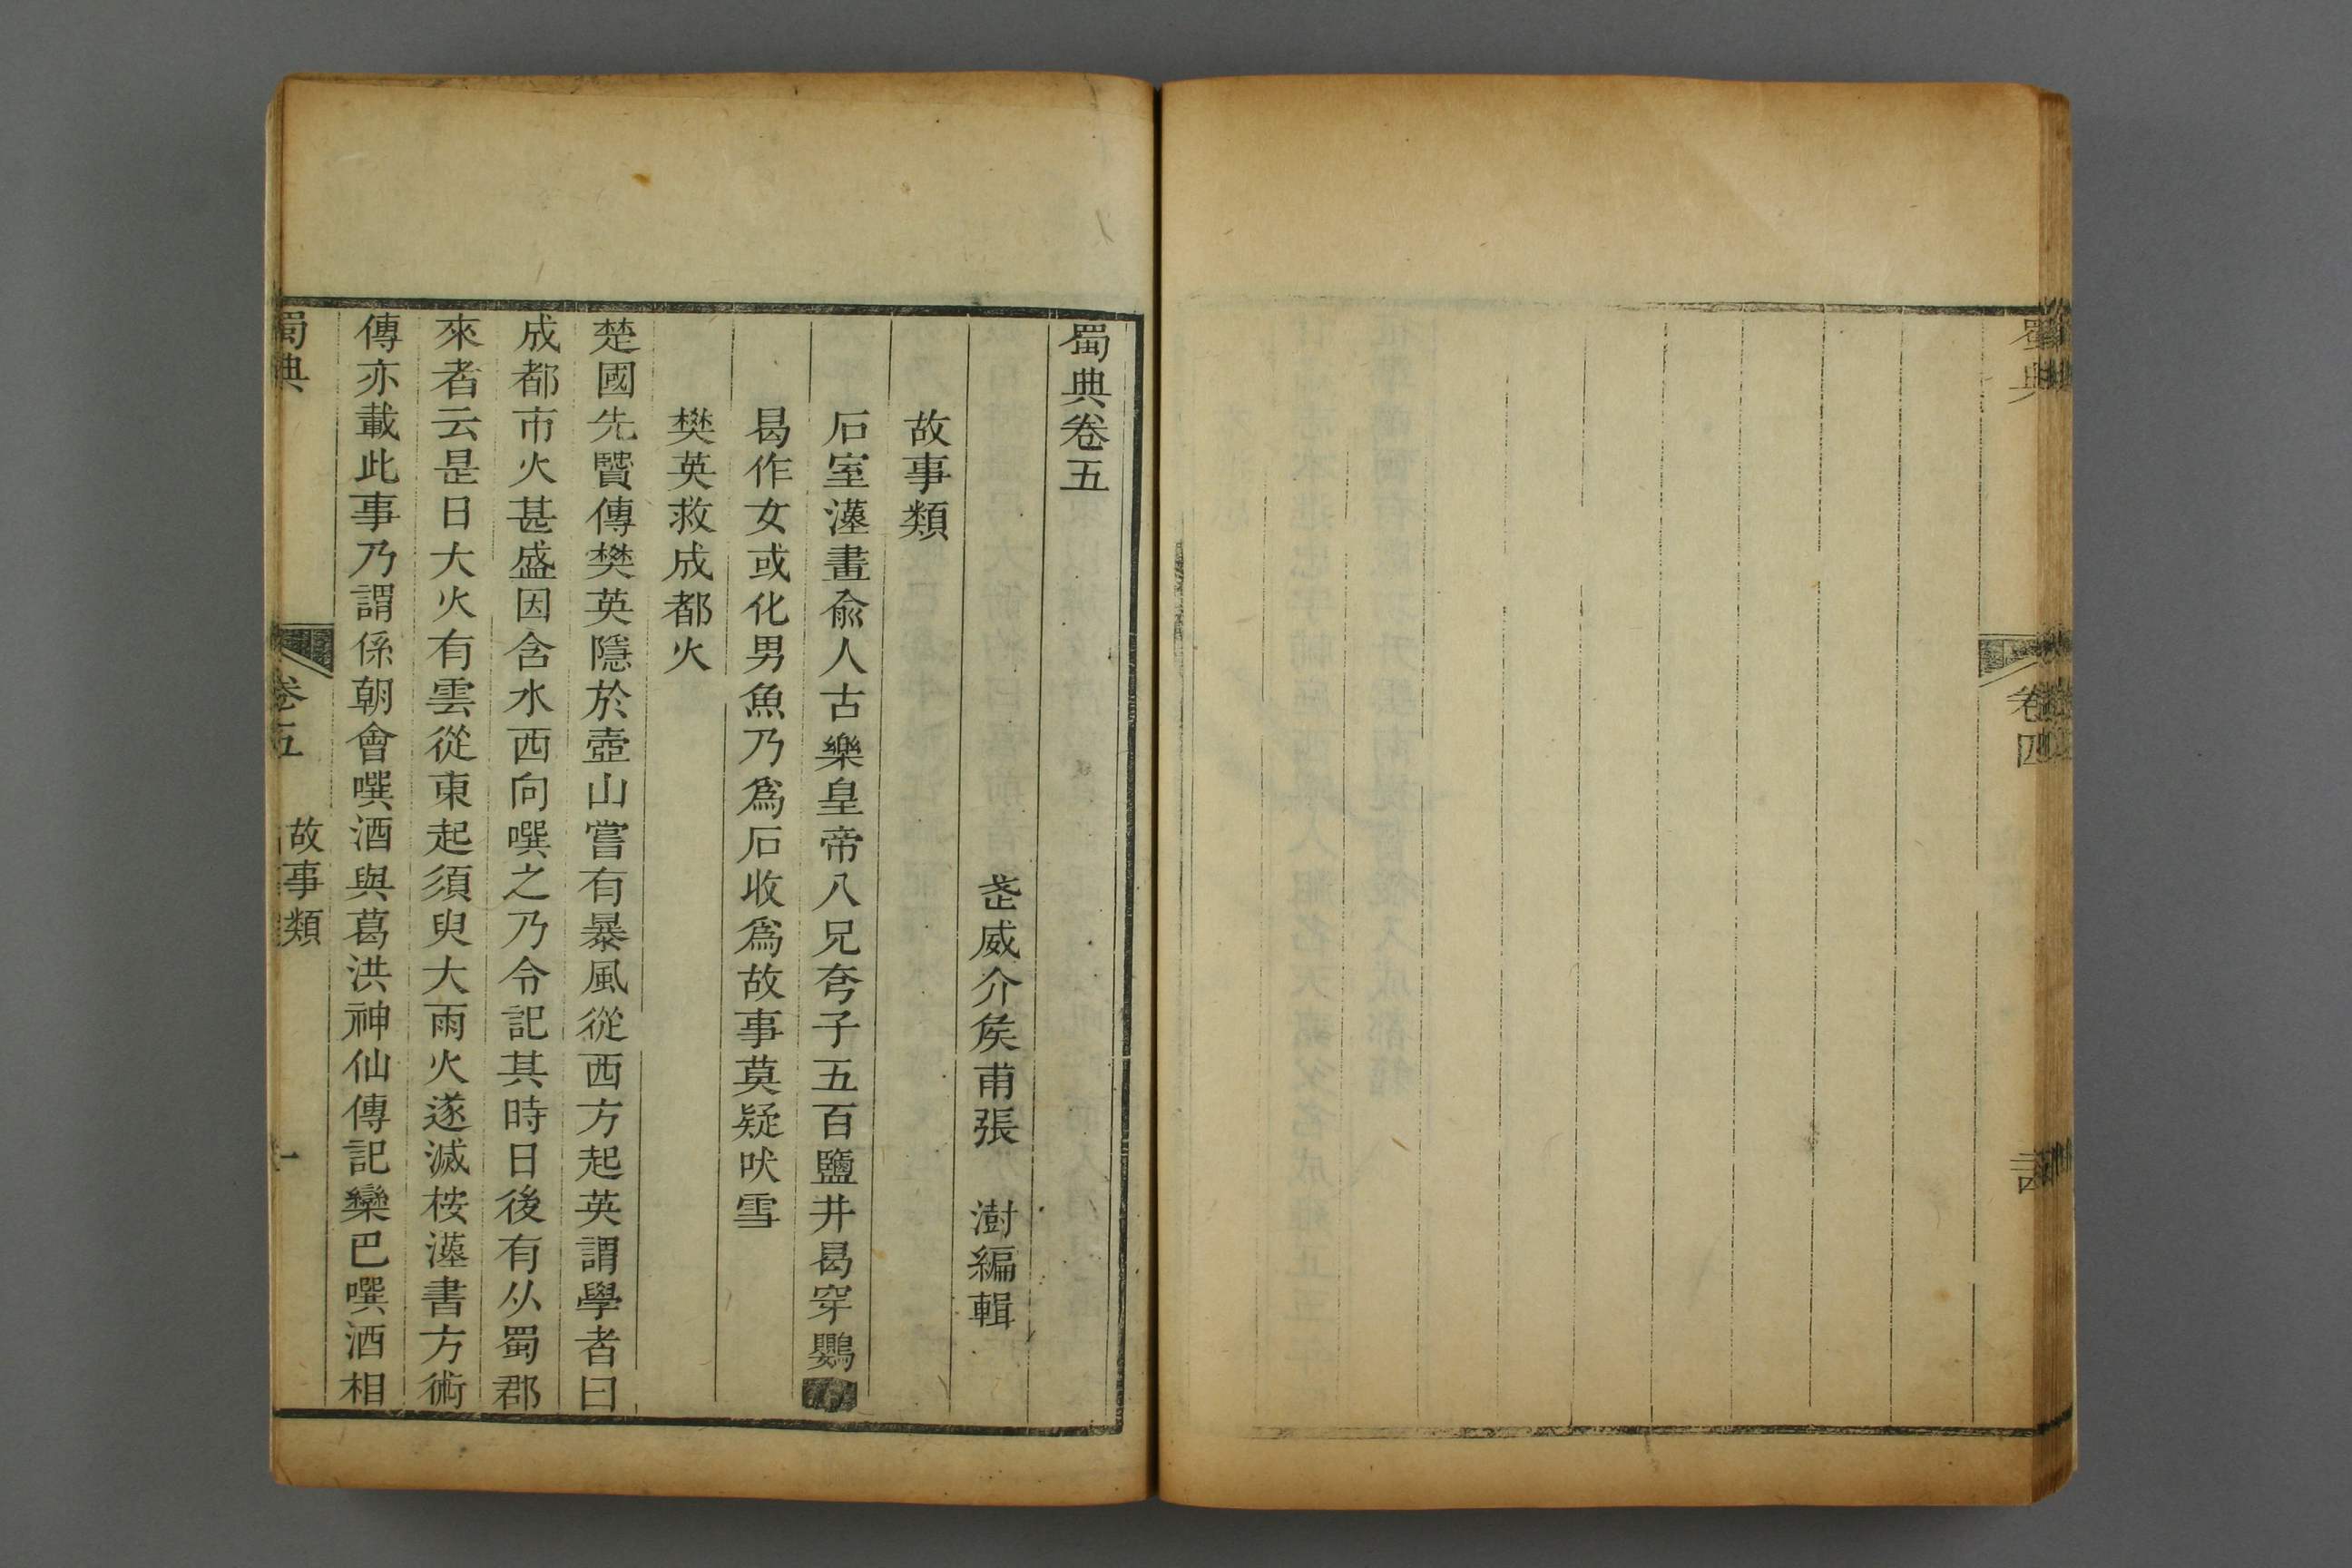 蜀典
卷四
蜀典卷五
武威介矦甫張　澍編輯
故事類
石室漢畫兪人古樂皇帝八兄夸子五百鹽井曷穿鸚
曷作女或化男魚乃爲石收爲故事莫疑吠雪
樊英救成都火
楚國先賢傳樊英隱於壺山嘗有暴風從西方起英謂學者曰
成都市火甚盛因含水西向噀之乃令記其時日後有从蜀郡
來者云是日大火有雲從東起須臾大雨火遂滅桉漢書方術
傳亦載此事乃謂係朝會噀酒與葛洪神仙傳記欒巴噀酒相
蜀典
卷五
故事類
一